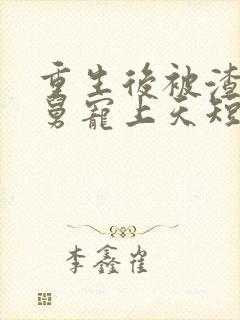 重生後被渣
舅寵上天短
李鑫崔